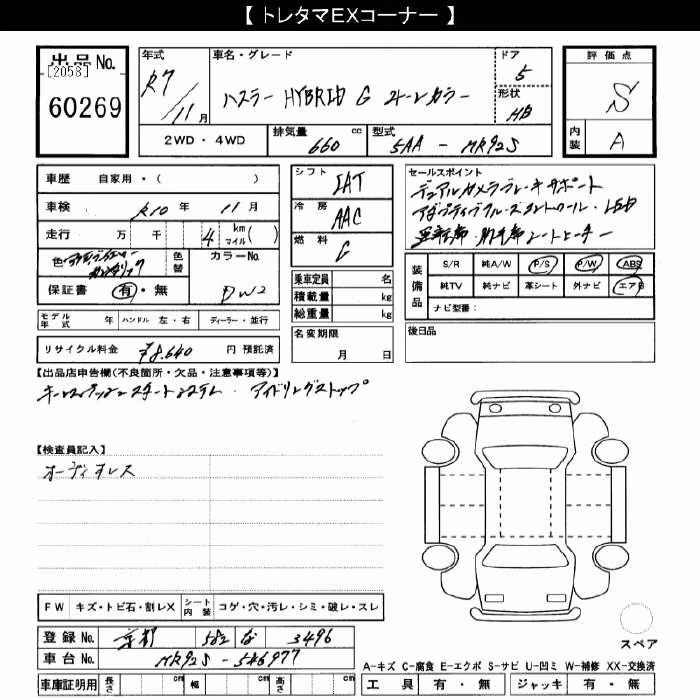 【 トレタマEXコーナー 】
出品No.
[2058]
60269
年式
R7
11 月
車名・グレード
ハスラー HYBRID G 2トーンカラー
ドア
5
形状
HB
評価点
S
内装
A
2WD・4WD
排気量
660 cc
型式
5AA - MR92S
車歴 自家用・( )
車検 R10 年 11 月
走行 万 千 4 km マイル( )
色
色替
カラーNo.
DW2
保証書 有・無
モデル年式 年 ハンドル 左・右 ディーラー・並行
リサイクル料金 ¥8,640 円 預託済
シフト
IAT
冷房
AAC
燃料
G
乗車定員 名
積載量 kg
総重量 kg
名変期限
月 日
セールスポイント
デュアルカメラブレーキサポート
アダプティブクルーズコントロール・LED
運転席・助手席シートヒーター
装備品
S/R 純A/W P/S P/W ABS
純TV 純ナビ 革シート 外ナビ エアB
ナビ型番:
後日品
【出品店申告欄(不良箇所・欠品・注意事項等)】
キーレスプッシュスタートシステム・アイドリングストップ
【検査員記入】
オーディオレス
FW キズ・トビ石・割レX シート内装 コゲ・穴・汚レ・シミ・破レ・スレ
登録No. 京都 582 な 3496
車台No. MR92S - 546977
車庫証明用 長さ cm 幅 cm 高さ cm
スペア
A-キズ C-腐食 E-エクボ S-サビ U-凹ミ W-補修 XX-交換済
工具 有・無 ジャッキ 有・無